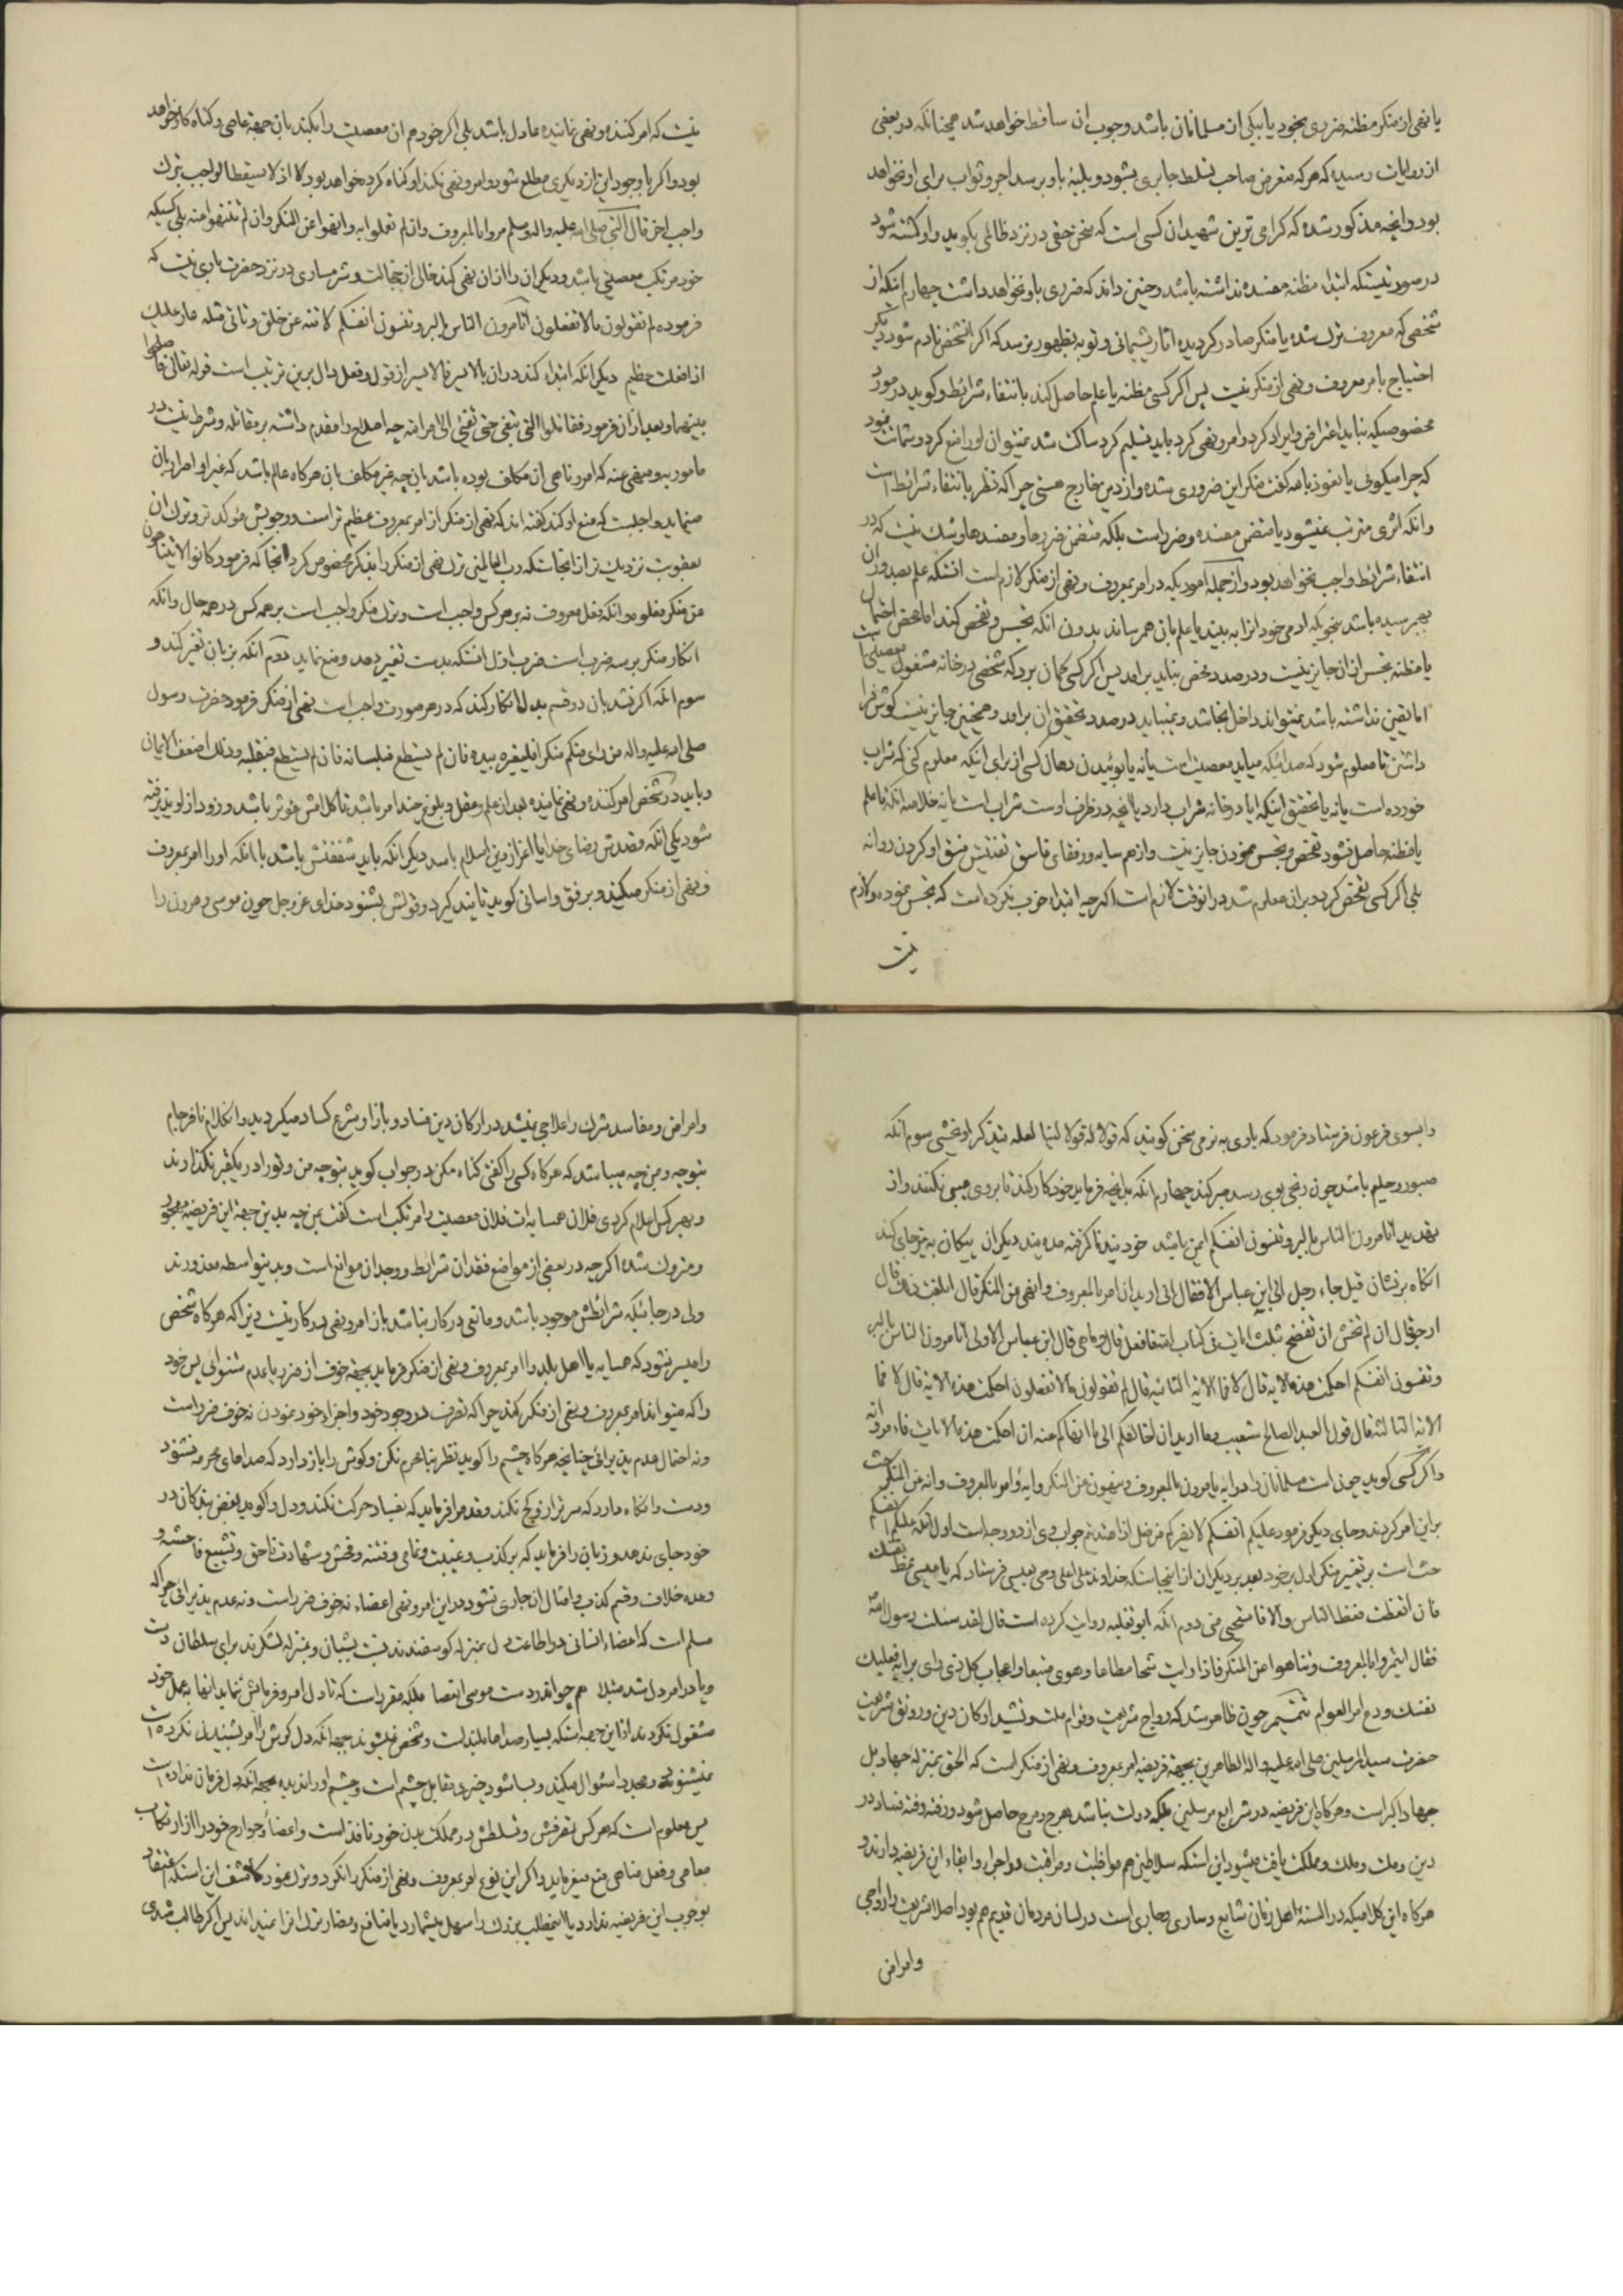 یا نهی از منکر مظنه ضرری بخود یا بیکی از مسلمانان باشد وجوب ان ساقط خواهد شد همچنانکه در بعضی
از روایات رسیده که هر که متعرض صاحب تسلط جابری بشود و بلیۀ باو برسد اجر و ثواب برای او نخواهد
بود و انچه مذکور شده که کرامی ترین شهیدان کسی است که سخن حقی در نزد ظالمی بکوید و او کشته شود
در صورتیستکه ابتداء مظنه مفسده نداشته باشد و چنین داند که ضرری باو نخواهد داشت چهارم اینکه از
شخصی که معروف ترک شده یا منکر صادر کردیده اثار پشیمانی و توبه بظهور نرسد که اکر انشخص نادم شود دیکر
احتیاج بامر معروف و نهی از منکر نیست پس اکر کسی مظنه یا علم حاصل کند بانتفاء شرائط و کوید در مورد
مخصوصیکه نباید اعتراض و ایراد کرد و امر و نهی کرد باید تسلیم کرد ساکت شد نمیتوان او را منع کرد و شماتت نمود
که چرا میکوئی یا نعوذ بالله کفت منکر این ضروری شده و از دین خارج هستی چرا که نظر بانتفاء شرائط است
و انکه اثری مترتب نمیشود یا متضمن مفسده و ضرر است بلکه متضمن ضررها و مفسدها و شک نیست که در
انتفاء شرائط واجب نخواهد بود و از جمله اموریکه در امر بمعروف و نهی از منکر لازم است انستکه علم بصدور ان
بهم رسیده باشد بنحویکه ادمی خود انرا به بیند یا علم بان همرساند بدون انکه تجسس و تفحص کند اما بمحض احتمال
یا مظنه تجسس از ان جایز نیست و درصدد تفحص نباید برامد پس اکر کسی کمان برد که شخصی در خانه مشغول معصیتی است
اما یقین نداشته باشد نمیتواند داخل انجا شد و نمیباید درصدد تحقیق ان برامد و همچنین جایز نیست کوش فرا
داشتن تا معلوم شود که صدائیکه میاید معصیت است یا نه یا بوئیدن دهان کسی از برای اینکه معلوم کنی که شراب
خورده است یا نه یا تحقیق اینکه ایا در خانه شراب دارد یا انچه در ظرف اوست شراب است یا نه خلاصه انکه تا علم
یا مظنه حاصل نشود تفحص و تجسس نمودن جایز نیست و از همسایه و رفقای فاسق تفتیش فسق او کردن روا نه
بلی اکر کسی تفحص کرد و بران معلوم شد در انوقت لازم است اکرچه ابتداء خوب نکرده است که تجسس نموده و لازم
نیست
نیست که امر کننده و نهی نماینده عادل باشد بلی اکر خود هم ان معصیت را بکند بان جهة عاصی و کناه کار خواهد
بود و اکر با وجود این از دیکری مطلع شود و امر و نهی نکند او کناه کرده خواهد بود کلا اذ لا یسقط الواجب بترک
واجب اخر قال النبی صلی الله علیه واله وسلم مروا بالمعروف وان لم تفعلوا به وانهوا عن المنکر وان لم تنتهوا عنه بلی کسیکه
خود مرتکب معصیتی باشد و دیکران را از ان نهی کند خالی از خجالت و شرمساری در نزد حضرت باری نیست که
فرموده لم تقولون مالا تفعلون اتامرون الناس بالبر وتنسون انفسکم لا تنه عن خلق و تاتی مثله عار علیک
اذا فعلت عظیم دیکر انکه ابتداء کند در ان بالایسر فالایسر از قول و فعل دال بر این ترتیب است قوله تعالی فاصلحوا
بینهما و بعد از ان فرمود فقاتلوا التی تبغی حتی تفیئ الی امر الله چه اصلاح را مقدم داشته بر مقاتله و شرط نیست در
مامور به و منهی عنه که امر و ناهی ان مکلف بوده باشد بان چه غیر مکلف بان هر کاه عالم باشد که غیر او اضرار بان
مینماید واجبست که منع او کند کفته اند که نهی از منکر از امر بمعروف عظیم تر است و وجوبش مؤکد تر و ترک ان
بعقوبت نزدیک تر از انجاستکه رب العالمین ترک نهی از منکر را بذکر مخصوص کرد انجا که فرمود کانوا لا یتناهون
عن منکر فعلوه و انکه فعل معروف نه بر هر کس واجب است و ترک منکر واجب است بر همه کس در همه حال و انکه
انکار منکر بر سه ضرب است ضرب اول انستکه بدست تغییر دهد و منع نماید دوم انکه بزبان تغیر کند و
سوم انکه اکر نشد بان دو قسم بدل انکار کند که در هر صورت واجب است نهی از منکر فرمود حضرت رسول
صلی الله علیه واله من رای منکم منکرا فلیغیره بیده فان لم یستطع فبلسانه فان لم یستطع فبقلبه وذلک اضعف الایمان
و باید در شخص امر کننده و نهی نماینده بعد از علم و عقل و بلوغ چند امر باشد تا کلامش مؤثر باشد و زود از او پذیرفته
شود یکی انکه قصدش رضای خدا یا اعزاز دین اسلام باشد دیکر انکه باید شفقتش باشد با انکه او را امر بمعروف
و نهی از منکر میکند و برفق و اسانی کوید تا پند کیرد و قولش بشنود خدای عز و جل چون موسی و هرون را
را بسوی فرعون فرستاد فرمود که با وی به نرمی سخن کویند که قولا له قولا لینا لعله یتذکر او یخشی سوم انکه
صبور و حلیم باشد چون رنجی بوی رسد صبر کند چهارم انکه بانچه فرماید خود کار کند تا بر وی عیبی نکنند و از
تهدید اتامرون الناس بالبر وتنسون انفسکم ایمن باشد خود پند نا کرفته مده پند دیکران پیکان به تیر جای کند
انکاه بر نشان قیل جاء رجل الی ابن عباس الا فقال انی ارید ان امر بالمعروف وانهی عن المنکر قال ابلغت ذلک قال
ارجو قال ان لم تخش ان تفتضح بثلث ایات فی کتاب الله فافعل قال وما هی قال ابن عباس الاولی اتامرون الناس بالبر
وتنسون انفسکم احکمت هذه الایة قال لا فما الایة الثانیة قال لم تقولون مالا تفعلون احکمت هذه الایة قال لا فما
الایة الثالثة قال قول العبد الصالح شعیب وما ارید ان اخالفکم الی ما انهاکم عنه ان احکمت هذه الایات فاء مر وانه
و اکر کسی کوید چون است مسلمانان را در ایه یامرون بالمعروف وینهون عن المنکر و ایه وامر بالمعروف وانه عن المنکر حث
بر این امر کردند و جای دیکر فرمود علیکم انفسکم لا یضرکم من ضل اذا اهتدیتم جواب وی از دو وجه است اول انکه علیکم انفسکم
حث است بر تغییر منکر اول بر خود بعد بر دیکران از اینجاستکه خداوند علی اعلی وحی بعیسی فرستاد که یا عیسی عظ نفسک
فان اتعظت فعظ الناس والا فاستحیی منی دوم انکه ابو ثعلبه روایت کرده است قال لقد سئلت رسول الله
فقال ائتمروا بالمعروف وتناهوا عن المنکر فاذا رایت شحا مطاعا وهوی متبعا واعجاب کل ذی رای برایه فعلیک
نفسک ودع امر العوام تتمیم چون ظاهر شد که رواج شریعت و قوام ملت و تشید ارکان دین و رونق شریعت
حضرت سید المرسلین صلی الله علیه واله الطاهرین بجهة فریضه امر بمعروف و نهی از منکر است که الحق بمنزله جهاد بل
جهاد اکبر است و هر کاه این فریضه در شرایع مرسلین بلکه دولت نباشد هرج و مرج حاصل شود و رفته رفته فساد در
دین و ملت و ملک و مملکت یافت میشود این استکه سلاطین هم مواظبت و مراقبت در اجراء و ابقاء این فریضه دارند و
هر کاه این کلامیکه در السنۀ اهل زمان شایع و ساری و جاری است در لسان مردمان قدیم هم بود اصلا شریعت را رواجی
و امراض
و امراض و مفاسد شرک را علاجی نمیشد در ارکان دین فساد و بازار شرع کساد میکردید و انکلام نافرجام
بتو چه و بمن چه میباشد که هر کاه کسی را کفتی کناه مکن در جواب کوید بتو چه من و تو را در یکقبر نکذارند
و بهر کس اعلام کردی فلان همسایه ات فلان معصیت را مرتکب است کفت بمن چه بدین جهة این فریضه مهجور
و متروک شده اکرچه در بعضی از مواضع فقدان شرائط و وجدان موانع است و بدینواسطه معذورند
ولی در جائیکه شرائطش موجود باشد و مانعی در کار نباشد باز امر و نهی در کار نیست زیرا که هر کاه شخص
را میسر نشود که همسایه یا اهل بلد را امر بمعروف و نهی از منکر فرماید بجهة خوف از ضرر یا عدم شنوائی پس خود
را که میتواند امر بمعروف و نهی از منکر کند چرا که تصرف در وجود خود و اجزاء خود نمودن نه خوف ضرر است
و نه احتمال عدم پذیرائی چنانچه هر کاه چشم را کوید نظر بنامحرم نکن و کوش را باز دارد که صداهای محرمه نشنود
و دست را نکاه دارد که سر تراز و کج نکند و قدم را فرماید که بفساد حرکت نکند و دل را کوید بغض بندکان در
خود جای ندهد و زبان را فرماید که بر کذب و غیبت و نمامی و فتنه و فحش و شهادت ناحق و تشییع فاحشه و
وعده خلاف و قسم کذب و امثال ان جاری نشود در این امر و نهی اعضاء نه خوف ضرر است و نه عدم پذیرائی چرا که
مسلم است که اعضاء انسانی در اطاعت دل بمنزله کوسفندند نسبت بشبان و بمنزله لشکرند برای سلطان
مشغول نکردند از این جهة استکه بسیار صداها بلند است و شخص نمیشنود بجهة انکه دل کوش را امر بشنیدن نکرده است
پس معلوم است که هر کس تصرفش و تسلطش در مملکت بدن خود نافذ است و اعضاء و جوارح خود را از ارتکاب
معاصی و فعل مناهی منع میفرماید و اکر این نوع امر بمعروف و نهی از منکر را نکرد و ترک نمود کاشف این استکه اعتقاد
بوجوب این فریضه ندارد یا اینمطلب بزرک را سهل میشمارد یا منافع و مضار ترک انرا نمیداند پس اکر طالب شدی